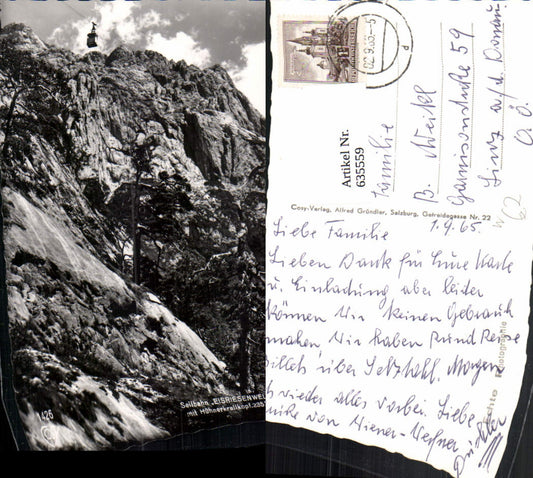 426
Seilbahn „EISRIESENWEL
mit Hühnerkrallkopf, 235
02.9.65.-5
d
Artikel Nr.
635559
Familie
B. Weikl
Garnisonstraße 59
Linz a/d. Donau
O. Ö.
62
Cosy-Verlag, Alfred Gründler, Salzburg, Getreidegasse Nr. 22
1.9.65.
Liebe Familie
Lieben Dank für Eure Karte
u. Einladung aber leider
können Wir keinen Gebrauch
machen Wir haben Rund Reise
über Morgen
wieder alles vorbei. Liebe
von Wiener-
Photographie